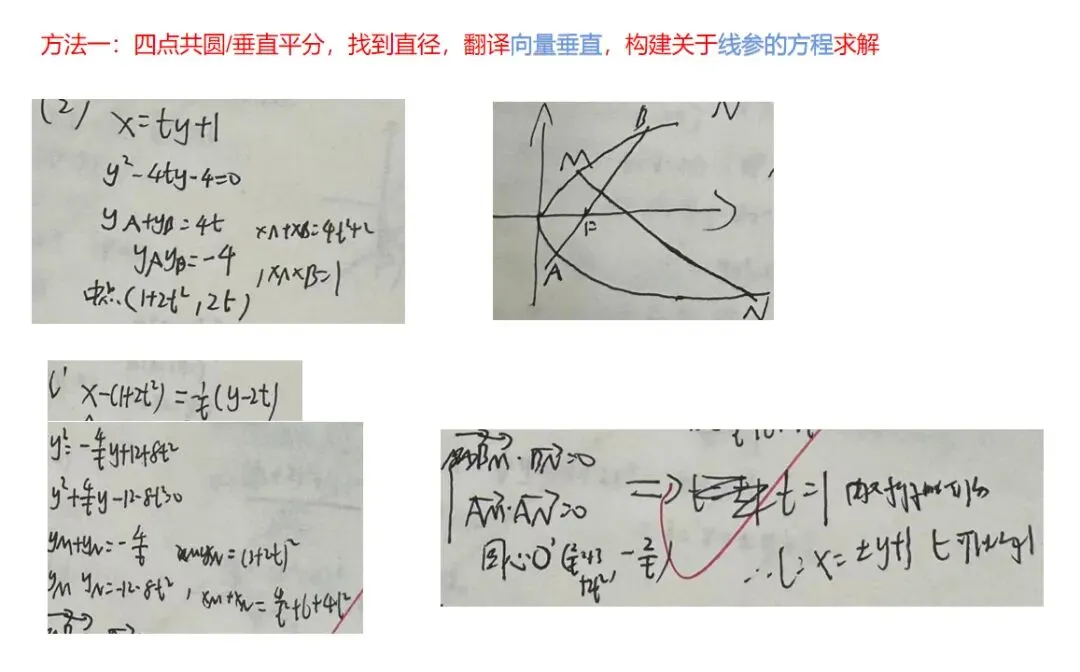 方法一：四点共圆/垂直平分，找到直径，翻译向量垂直，构建关于线参的方程求解
(2) x=ty+1
y²-4ty-4=0
yA+yB=4t xA+xB=4t²+2
yAyB=-4 , xAxB=1
中点(1+2t², 2t)
B N
M
F
A
N
l' x-(1+2t²)=-1/t(y-2t)
y²=-4/t y+12+8t²
y²+4/t y-12-8t²=0
yM+yN=-4/t
yM yN=-12-8t² , xM+xN=4/t²+6+4t²
BM·BN=0
AM·AN=0 ⇒ t=1
圆心O'(2/t²+3+2t², -2/t) ∴l: x=±y+1